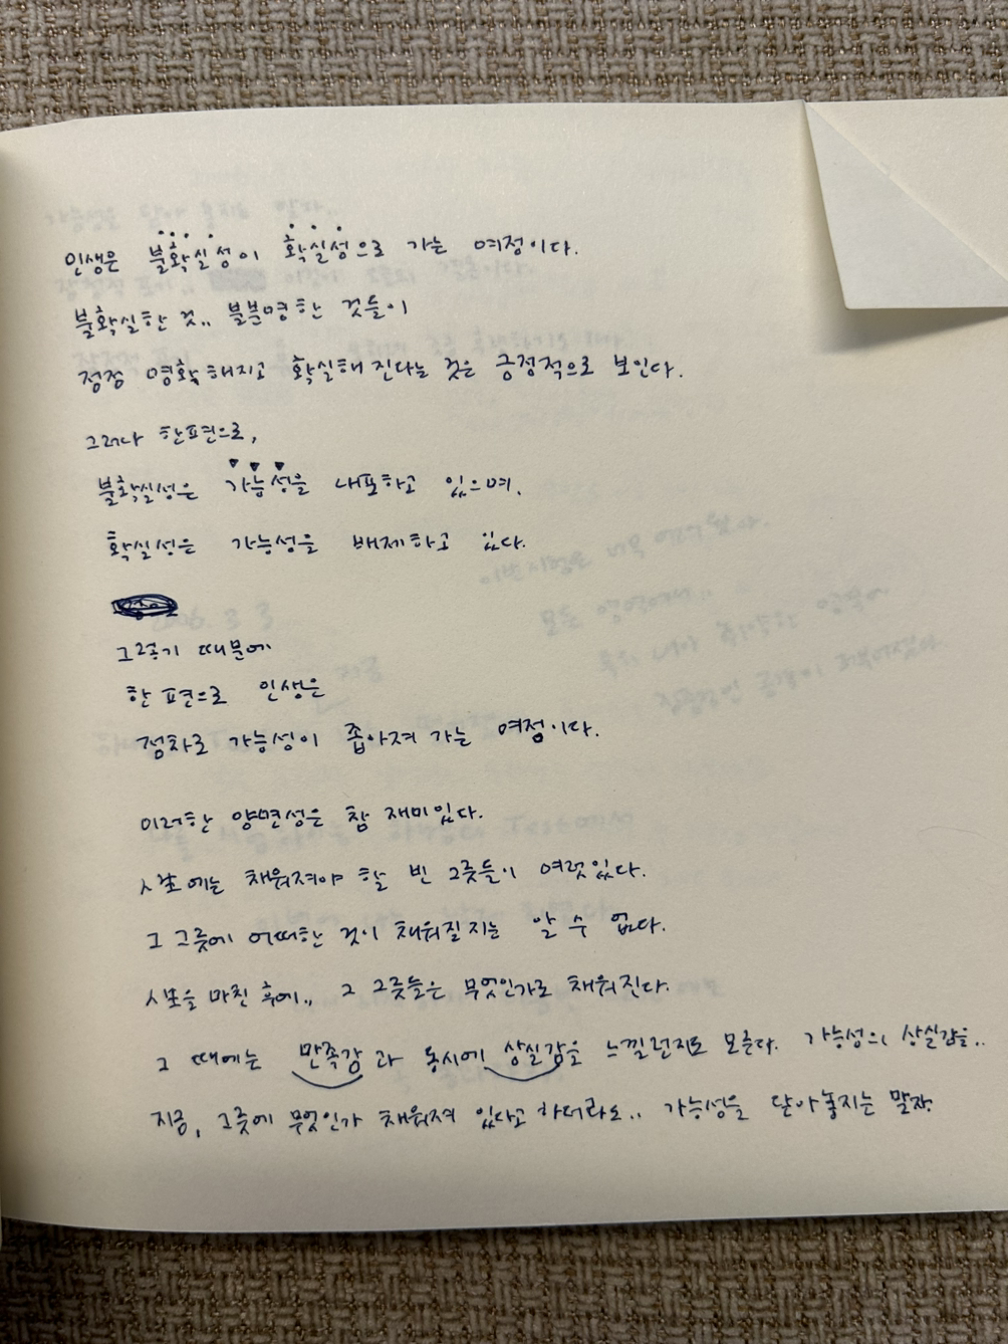 인생은 불확실성이 확실성으로 가는 여정이다.
불확실한 것.. 불분명한 것들이
점점 명확해지고 확실해진다는 것은 긍정적으로 보인다.
그러나 한편으로,
불확실성은 가능성을 내포하고 있으며,
확실성은 가능성을 배제하고 있다.
그렇기 때문에
한편으로 인생은
점차로 가능성이 좁아져 가는 여정이다.
이러한 양면성은 참 재미있다.
채워져야 할 빈 그릇들이 여럿있다.
그 그릇에 어떠한 것이 채워질지는 알 수 없다.
마친 후에.. 그 그릇들은 무엇인가로 채워진다.
그 때에는 만족감과 동시에 상실감을 느낄런지도 모른다. 가능성의 상실감을..
지금, 그릇에 무엇인가 채워져 있다고 하더라도.. 가능성을 닫아놓지는 말자